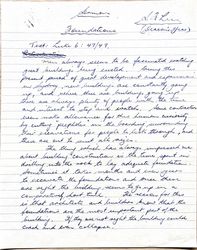 Sermon
Foundations
Text: Luke 6: 47, 49.
Men always seem to be fascinated watching
great buildings being erected. During this
present period of great development and expansion
in Sydney, new buildings are constantly going
up, and where these are buildings going up
there are always plenty of people with the time
and interest to stop and watch. The contractors
even make allowance for this human curiosity
by cutting peepholes in the boarding surrounding
their excavations for people to look through, and
these are put to much use.
The thing which has always impressed me
about building construction is the time spent in
drilling into the rock to lay adequate foundations.
Sometimes it takes months and even years
to excavate the foundations and once these
are right the building seems to spring up in a
comparatively short time. The reason for this
is that architects and builders know that the
foundations are the most important part of the
building. If they are not right the building could
crack and even collapse.